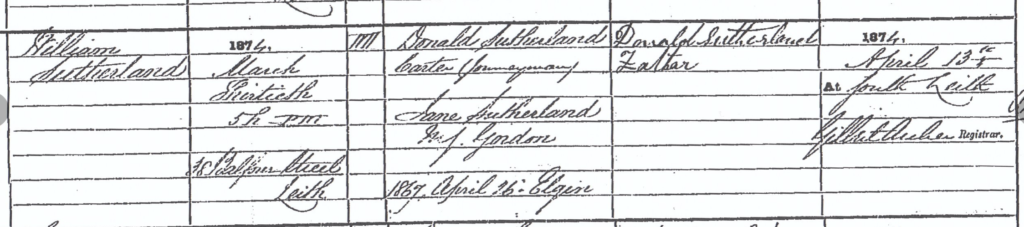 William
Sutherland
1874.
March
Thirtieth
5h PM
38 Balfour Street
Leith
M
Donald Sutherland
Carter (Journeyman)
Jane Sutherland
M.S. Gordon
1867, April 26. Elgin
Donald Sutherland
Father
1874.
April 13th
At South Leith
Gilbert Archer Registrar.